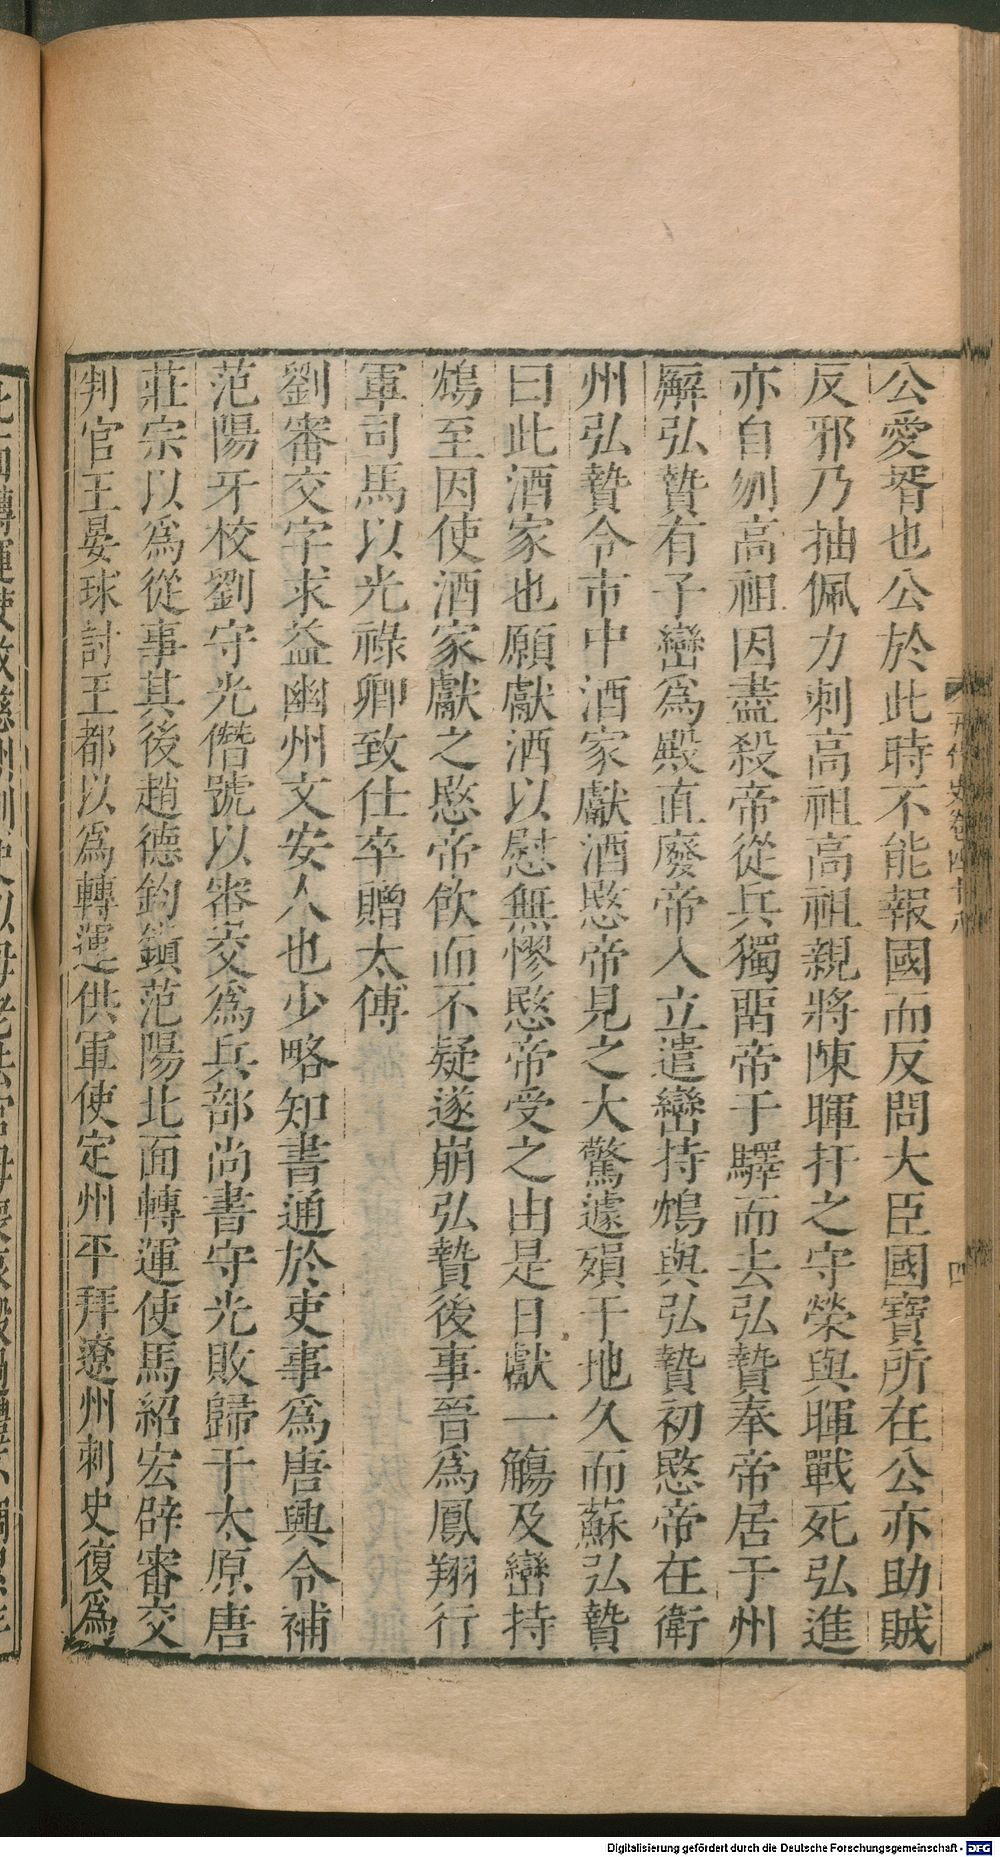 公愛壻也公於此時不能報國而反問大臣國寶所在公亦助賊
反邪乃抽佩刀刺高祖高祖親將陳暉扞之守榮與暉戰死弘進
亦自刎高祖因盡殺帝從兵獨畱帝于驛而去弘贄奉帝居于州
廨弘贄有子巒爲殿直廢帝入立遣巒持鴆與弘贄初愍帝在衛
州弘贄令市中酒家獻酒愍帝見之大驚遽殞于地久而蘇弘贄
曰此酒家也願獻酒以慰無憀愍帝受之由是日獻一觴及巒持
鴆至因使酒家獻之愍帝飲而不疑遂崩弘贄後事晉爲鳳翔行
軍司馬以光祿卿致仕卒贈太傅
劉審交字求益幽州文安人也少略知書通於吏事爲唐興令補
范陽牙校劉守光僭號以審交爲兵部尚書守光敗歸于太原唐
莊宗以爲從事其後趙德鈞鎭范陽北面轉運使馬紹宏辟審交
判官王晏球討王都以爲轉運供軍使定州平拜遼州刺史復爲
五代史卷四十八
四
Digitalisierung gefördert durch die Deutsche Forschungsgemeinschaft - DFG